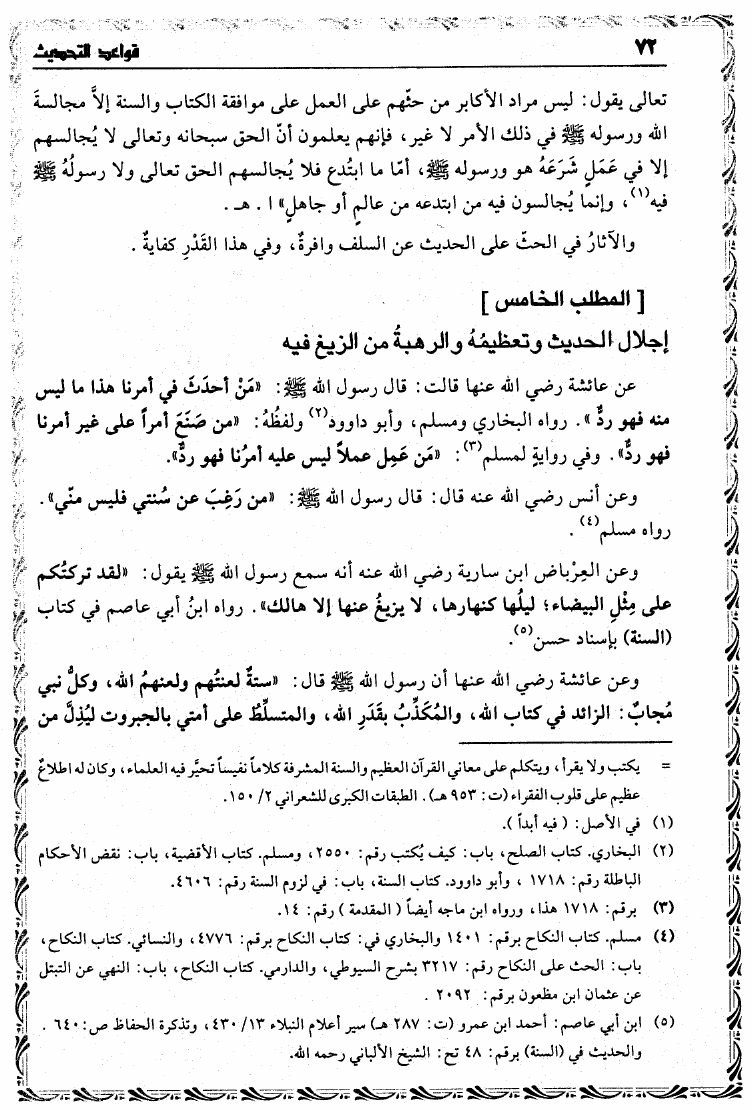 ٧٢
قواعد التحديث
تعالى يقول: ليس مراد الأكابر من حثّهم على العمل على موافقة الكتاب والسنة إلاَّ مجالسةَ
الله ورسوله ﷺ في ذلك الأمر لا غير، فإنهم يعلمون أنّ الحق سبحانه وتعالى لا يُجالسهم
إلا في عَمَلٍ شَرَعَهُ هو ورسوله ﷺ، أمّا ما ابتُدع فلا يُجالسهم الحق تعالى ولا رسولُهُ ﷺ
فيه(١)، وإنما يُجالسون فيه من ابتدعه من عالمٍ أو جاهلٍ» ا . هـ .
والآثارُ في الحثّ على الحديث عن السلف وافرةٌ، وفي هذا القَدْرِ كفايةٌ .
[ المطلب الخامس ]
إجلال الحديث وتعظيمُهُ والرهبةُ من الزيغ فيه
عن عائشة رضي الله عنها قالت: قال رسول الله ﷺ: «مَنْ أحدَثَ في أمرنا هذا ما ليس
منه فهو ردٌّ». رواه البخاري ومسلم، وأبو داوود(٢) ولفظُهُ: «من صَنَعَ أمراً على غير أمرنا
فهو ردٌّ». وفي روايةٍ لمسلم(٣): «مَن عَمِل عملاً ليس عليه أمرُنا فهو ردٌّ».
وعن أنس رضي الله عنه قال: قال رسول الله ﷺ: «من رَغِبَ عن سُنتي فليس منّي».
رواه مسلم(٤) .
وعن العِرْباض ابن سارية رضي الله عنه أنه سمع رسول الله ﷺ يقول: «لقد تركتُكم
على مِثْلِ البيضاء؛ ليلُها كنهارها، لا يزيغُ عنها إلا هالك». رواه ابنُ أبي عاصم في كتاب
(السنة) بإسناد حسن(٥).
وعن عائشة رضي الله عنها أن رسول الله ﷺ قال: «ستةٌ لعنتُهم ولعنهمُ الله، وكلُّ نبي
مُجابٌ: الزائد في كتاب الله، والمُكَذِّبُ بقَدَرِ الله، والمتسلِّطُ على أمتي بالجبروت ليُذِلَّ من
= يكتب ولا يقرأ، ويتكلم على معاني القرآن العظيم والسنة المشرفة كلاماً نفيساً تحيَّر فيه العلماء، وكان له اطلاعٌ
عظيم على قلوب الفقراء (ت: ٩٥٣ هـ). الطبقات الكبرى للشعراني ٢/ ١٥٠.
(١) في الأصل: ( فيه أبداً ).
(٢) البخاري. كتاب الصلح، باب: كيف يُكتب رقم: ٢٥٥٠، ومسلم. كتاب الأقضية، باب: نقض الأحكام
الباطلة رقم: ١٧١٨ ، وأبو داوود. كتاب السنة، باب: في لزوم السنة رقم: ٤٦٠٦.
(٣) برقم: ١٧١٨ هذا، ورواه ابن ماجه أيضاً ( المقدمة ) رقم: ١٤.
(٤) مسلم. كتاب النكاح برقم: ١٤٠١ والبخاري في: كتاب النكاح برقم: ٤٧٧٦، والنسائي. كتاب النكاح،
باب: الحث على النكاح رقم: ٣٢١٧ بشرح السيوطي، والدارمي. كتاب النكاح، باب: النهي عن التبتل
عن عثمان ابن مظعون برقم: ٢٠٩٢ .
(٥) ابن أبي عاصم: أحمد ابن عمرو (ت: ٢٨٧ هـ) سير أعلام النبلاء ١٣/ ٤٣٠، وتذكرة الحفاظ ص: ٦٤٠ .
والحديث في (السنة) برقم: ٤٨ تح: الشيخ الألباني رحمه الله.